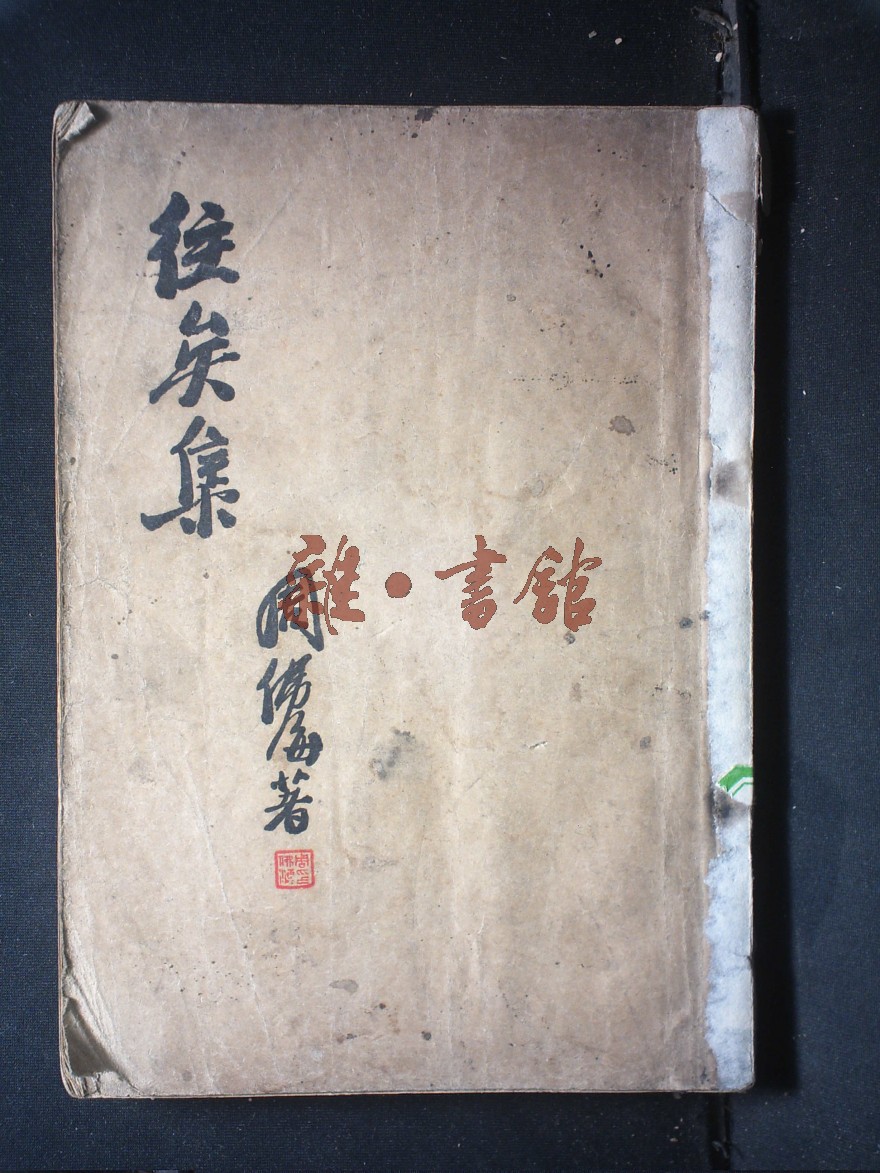 往矣集
周佛海著
雜·書館